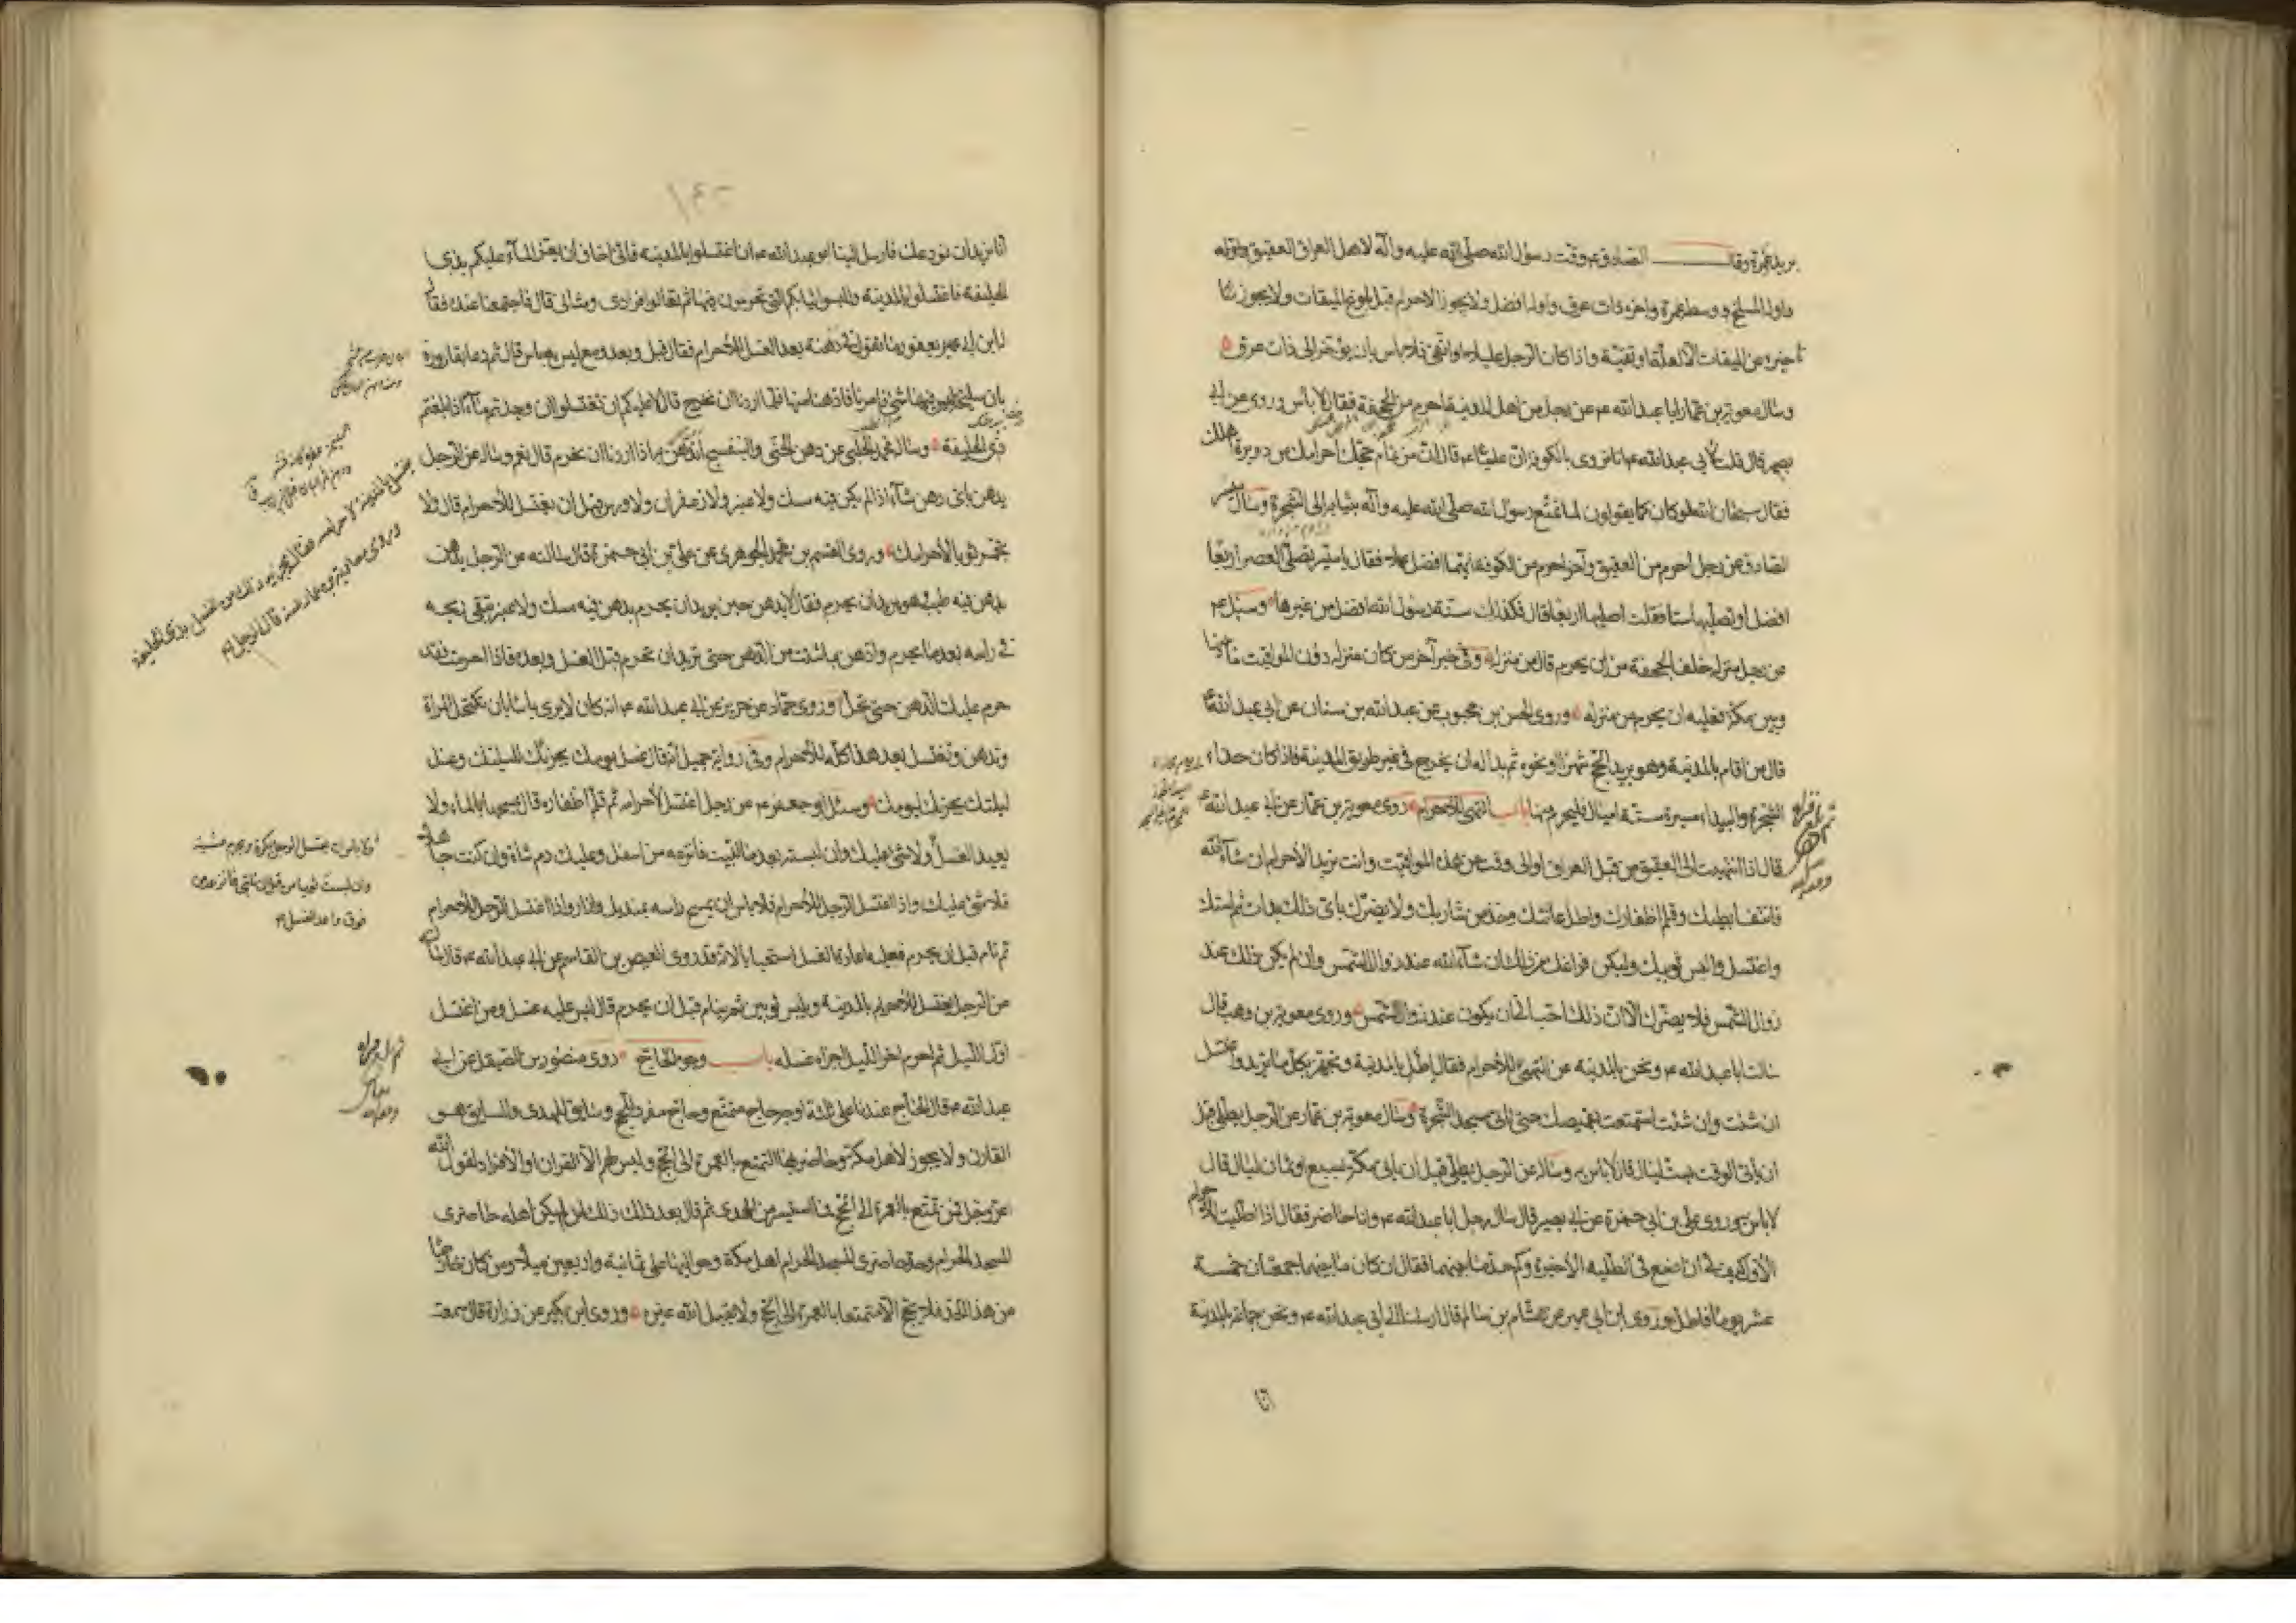 يريد غمرة وقال الصادق ع وقت رسول الله صلى الله عليه وآله لاهل العراق العقيق واوله
واوله المسلخ ووسطه غمرة وآخره ذات عرق واوله افضل ولا يجوز الاحرام قبل بلوغ الميقات ولا يجوز
تأخيره عن الميقات الا لعلة او تقية واذا كان الرجل عليلا او اتقى فلا باس بان يؤخر الى ذات عرق
وسال معوية بن عمار ابا عبد الله ع عن رجل من اهل المدينة احرم من الجحفة فقال لا باس وروى عن ابي
بصير قال قلت لابي عبد الله ع انا نروى بالكوفة ان عليا ع قال ان من تمام حجك احرامك من دويرة اهلك
فقال سبحان الله لو كان كما يقولون لما تمتع رسول الله صلى الله عليه وآله بثيابه الى الشجرة وسال
الصادق عن رجل احرم من العقيق وآخر احرم من الكوفة ايهما افضل فقال يا ميسر تصلى العصر اربعا
افضل او تصليها ستا فقلت اصليها اربعا قال فكذلك سنة رسول الله افضل من غيرها وسئل ع
عن رجل منزله خلف الجحفة من اين يحرم قال من منزله وفي خبر آخر من كان منزله دون المواقيت ما بينها
وبين مكة فعليه ان يحرم من منزله وروى الحسن بن محبوب عن عبد الله بن سنان عن ابي عبد الله ع
قال من اقام بالمدينة وهو يريد الحج شهرا او نحوه ثم بدا له ان يخرج في غير طريق المدينة فاذا كان حذاء
الشجرة والبيداء مسيرة ستة اميال فليحرم منها باب التهيئ للاحرام روى معوية بن عمار عن ابي عبد الله ع
قال اذا انتهيت الى العقيق من قبل العراق او الى وقت من هذه المواقيت وانت تريد الاحرام ان شاء الله
فانتف ابطيك وقلم اظفارك واطل عانتك وخذ من شاربك ولا يضرك باى ذلك بدأت ثم استك
واغتسل والبس ثوبيك وليكن فراغك من ذلك ان شاء الله عند زوال الشمس وان لم يكن ذلك عند
زوال الشمس فلا يضرك الا ان ذلك احب الى ان يكون عند زوال الشمس وروى معوية بن وهب قال
سالت ابا عبد الله ع ونحن بالمدينة عن التهيئ للاحرام فقال اطل بالمدينة وتجهز بكل ما تريد واغتسل
ان شئت وان شئت استمتعت بقميصك حتى تاتى مسجد الشجرة وسال معوية بن عمار عن الرجل يطلى قبل
ان ياتى الوقت بست ليال قال لا باس وساله عن الرجل يطلى قبل ان ياتى مكة بسبع او ثمان ليال قال
لا باس وروى علي بن ابي حمزة عن ابي بصير قال سال رجل ابا عبد الله ع وانا حاضر فقال اذا اطليت للاحرام
الاول كيف لى ان اصنع في الطلية الاخيرة وكم حد ما بينهما فقال ان كان ما بينهما جمعتان خمسة
عشر يوما فاطل وروى ابن ابي عمير عن هشام بن سالم قال ارسلنا الى ابي عبد الله ع ونحن جماعة بالمدينة
انا
انا نريد ان نودعك فارسل الينا ابو عبد الله ع ان اغتسلوا بالمدينة فانى اخاف ان يعز الماء عليكم بذى
الحليفة فاغتسلوا بالمدينة والبسوا ثيابكم التي تحرمون فيها ثم تعالوا فرادى ومثانى قال فاجتمعنا عنده فقال
له ابن ابي يعفور ما تقول في دهنة بعد الغسل للاحرام فقال قبل وبعد ومع ليس به باس قال ثم دعا بقارورة
بان سليخة ليس فيها شئ فامرنا فادهنا منها فلما اردنا ان نخرج قال لا عليكم ان تغتسلوا ان وجدتم ماء اذا بلغتم
ذى الحليفة وساله محمد الحلبى عن دهن الحنا والبنفسج اندهن به اذا اردنا ان نحرم قال نعم وساله عن الرجل
يدهن باى دهن شاء اذا لم يكن فيه مسك ولا عنبر ولا زعفران ولا ورس قبل ان يغتسل للاحرام قال ولا
تجمر ثوبا لاحرامك وروى القسم بن محمد الجوهرى عن علي بن ابي حمزة قال سالته عن الرجل يدهن
بدهن فيه طيب وهو يريد ان يحرم فقال لا يدهن حين يريد ان يحرم بدهن فيه مسك ولا عنبر تبقى ريحه
في راسه بعد ما يحرم وادهن بما شئت من الدهن حتى تريد ان تحرم قبل الغسل وبعده فاذا احرمت فقد
حرم عليك الدهن حتى تحل وروى حماد عن حريز عن ابي عبد الله ع انه كان لا يرى باسا بان تكتحل المراة
وتدهن وتغتسل بعد هذا كله للاحرام وفي رواية جميل انه قال غسل يومك يجزيك لليلتك وغسل
ليلتك يجزيك ليومك وسئل ابو جعفر ع عن رجل اغتسل لاحرامه ثم قلم اظفاره قال يمسحها بالماء ولا
يعيد الغسل ولا شئ عليك وان لبسته بعد ما لبيت فانزعه من اسفل وعليك دم شاة وان كنت جاهلا
فلا شئ عليك واذا اغتسل الرجل للاحرام فلا باس ان يمسح راسه بمنديل وازار واذا اغتسل الرجل للاحرام
ثم نام قبل ان يحرم فعليه اعادة الغسل استحبابا لانه قد روى العيص بن القاسم عن ابي عبد الله ع قال سالته
عن الرجل يغتسل للاحرام بالمدينة ويلبس ثوبين ثم ينام قبل ان يحرم قال ليس عليه غسل ومن اغتسل
اول الليل ثم احرم اخر الليل اجزاه غسله باب وجوه الحاج روى منصور بن الصيقل عن ابي
عبد الله ع قال الحاج عندنا على ثلثة اوجه حاج متمتع وحاج مفرد للحج وسايق للهدى والسايق هو
القارن ولا يجوز لاهل مكة وحاضريها التمتع بالعمرة الى الحج وليس لهم الا القران او الافراد لقول الله
عز وجل فمن تمتع بالعمرة الى الحج فما استيسر من الهدى ثم قال بعد ذلك ذلك لمن لم يكن اهله حاضرى
المسجد الحرام وحد حاضرى المسجد الحرام اهل مكة وحواليها على ثمانية واربعين ميلا ومن كان خارجا
من هذا الحد فلا يحج الا متمتعا بالعمرة الى الحج ولا يقبل الله غيره وروى ابن بكير عن زرارة قال سمعت
وروى معاوية بن عمار عنه قال الرجل
يغتسل بالمدينة لاحرامه فقال يجزيه ذلك من الغسل بذى الحليفة
ولا باس ان يغتسل الرجل بكرة ويحرم عشية
وان لبست ثوبا من قبل ان تلبى فانزعه من
فوق واعد الغسل